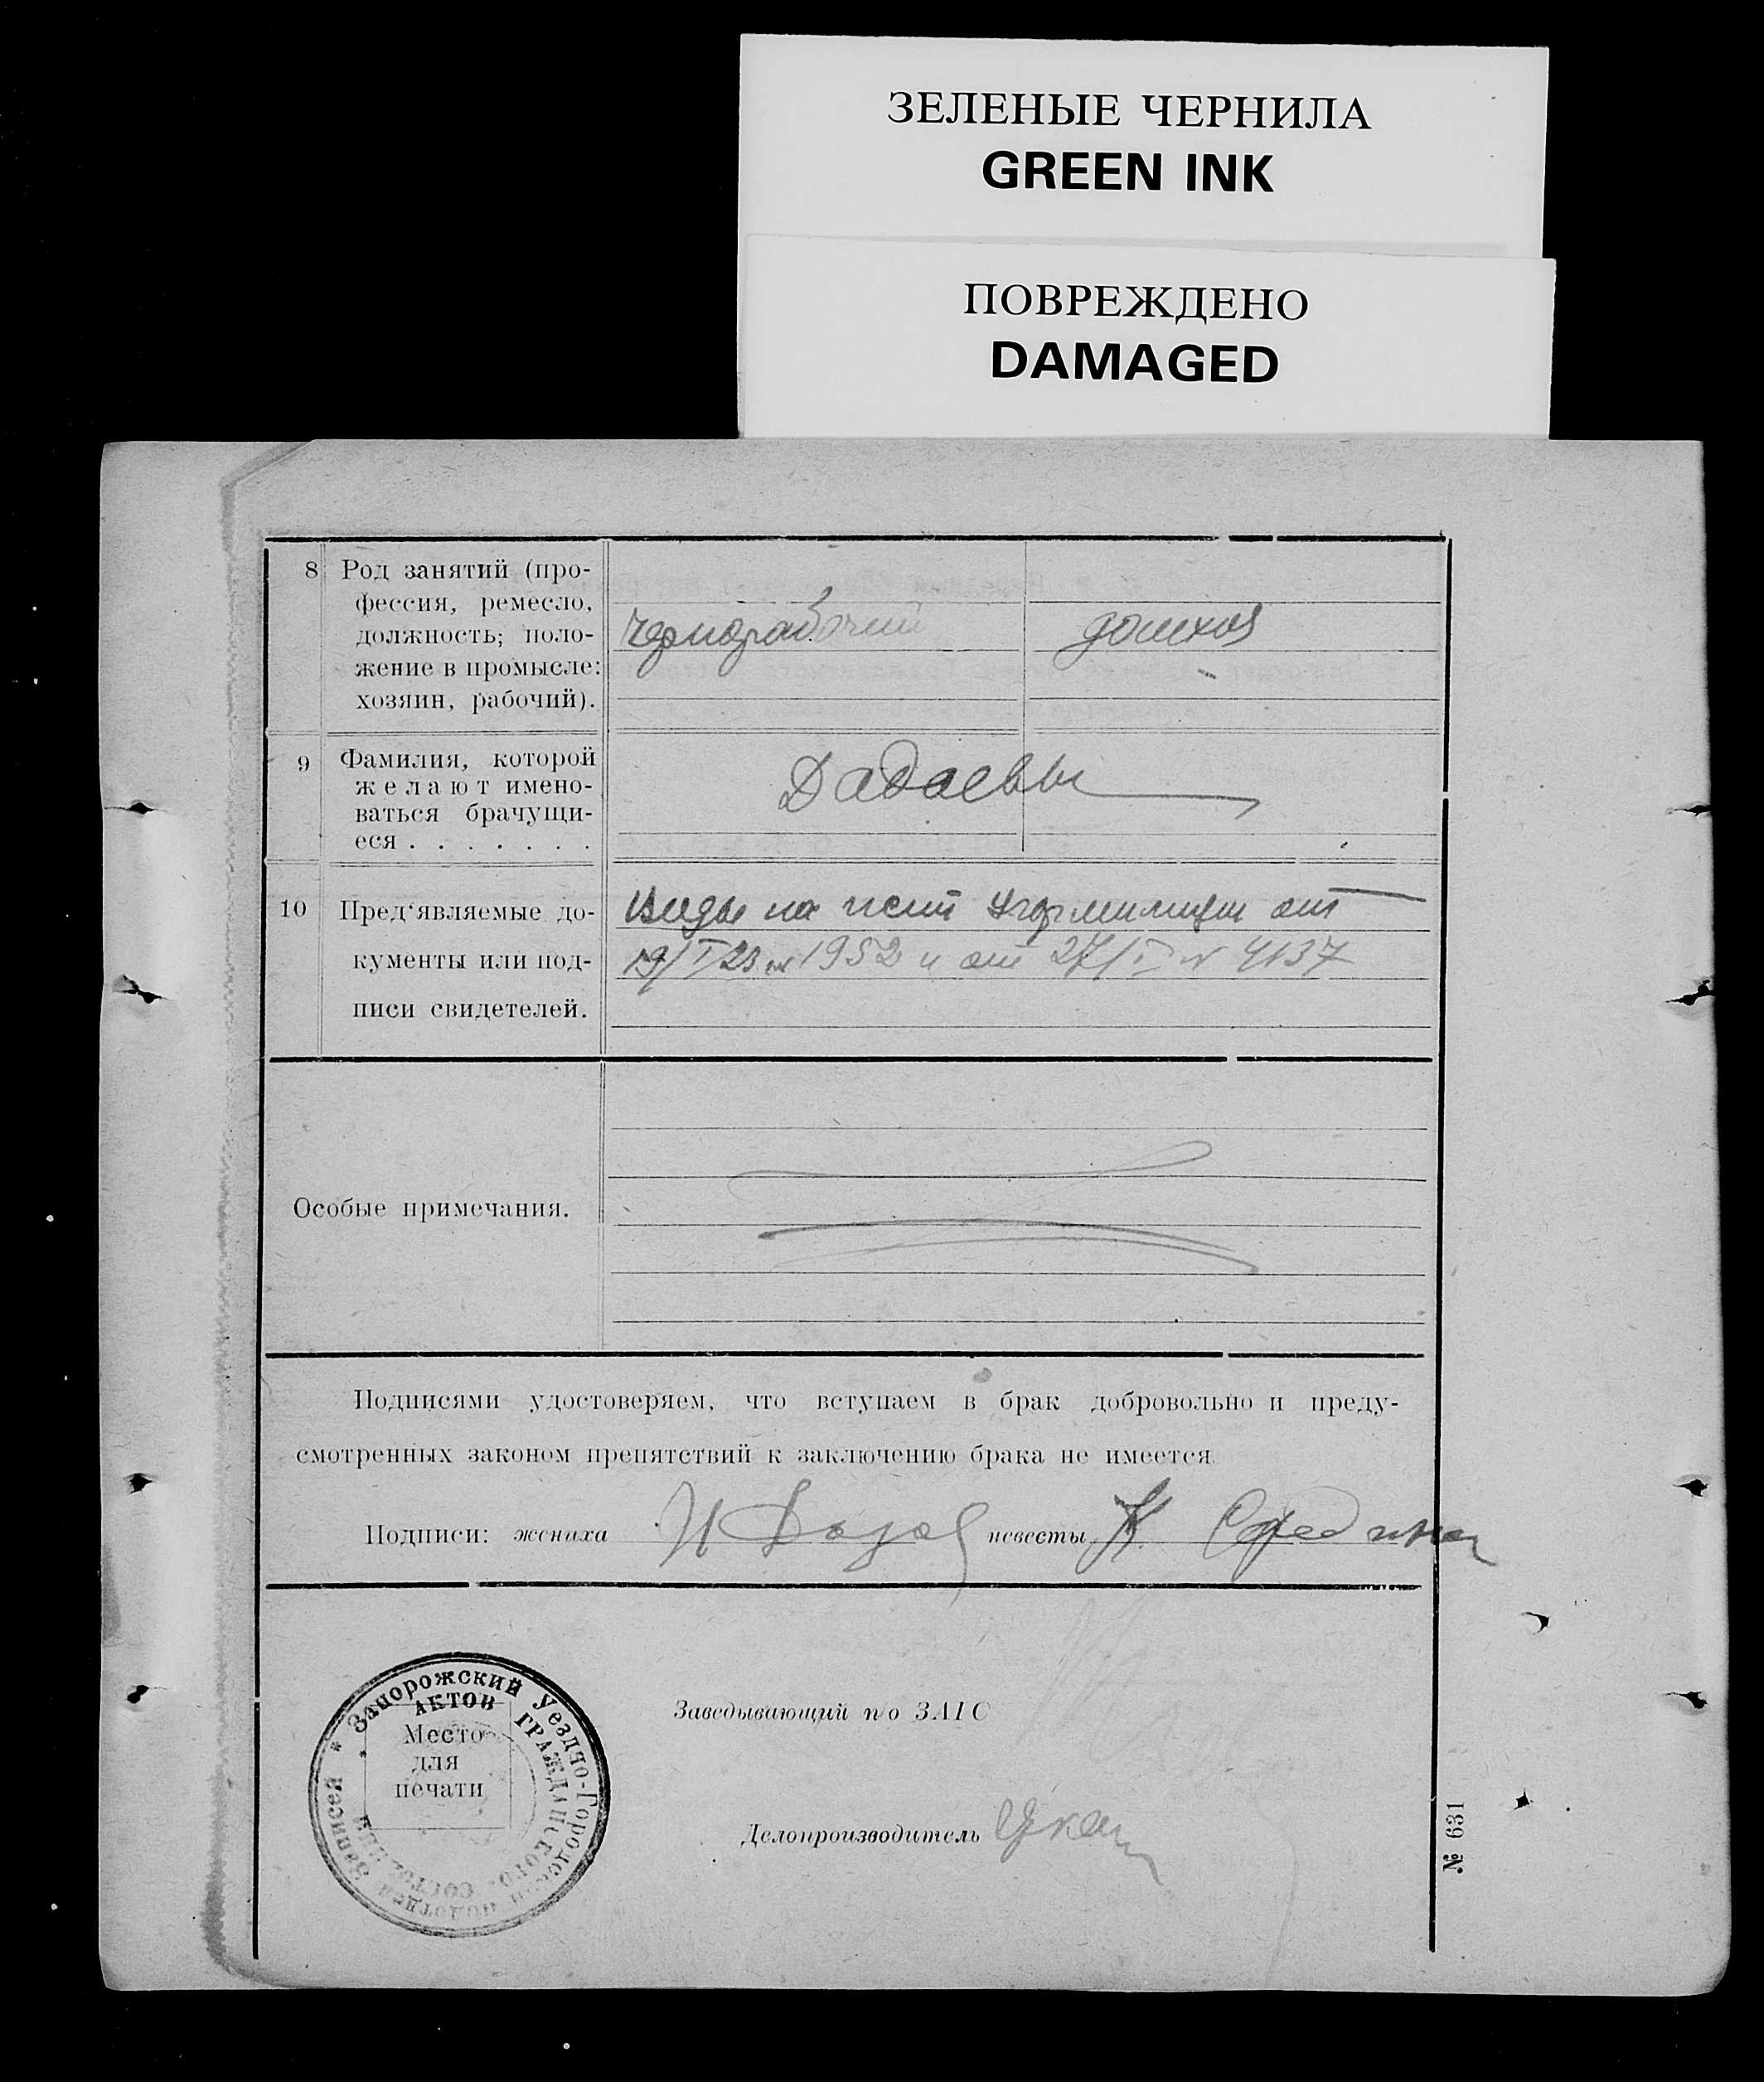 ЗЕЛЕНЫЕ ЧЕРНИЛА
GREEN INK
ПОВРЕЖДЕНО
DAMAGED
8 Род занятий (про-
фессия, ремесло,
должность; поло-
жение в промысле:
хозяин, рабочий).
чернорабочий
домхоз
9 Фамилия, которой
желают имено-
ваться брачущи-
еся . . . . . . .
Дадаевы
10 Пред'являемые до-
кументы или под-
писи свидетелей.
Виды на жит от
19/I 23 № 1952 и от 27/I № 4137
Особые примечания.
Подписями удостоверяем, что вступаем в брак добровольно и преду-
смотренных законом препятствий к заключению брака не имеется.
Подписи: жениха И невесты К
Запорожский Уездно-Городской подотдел Записей
АКТОВ ГРАЖДАНСКОГО СОСТОЯНИЯ
Место
для
печати
Заведывающий п/о ЗАГС
Делопроизводитель
№ 631